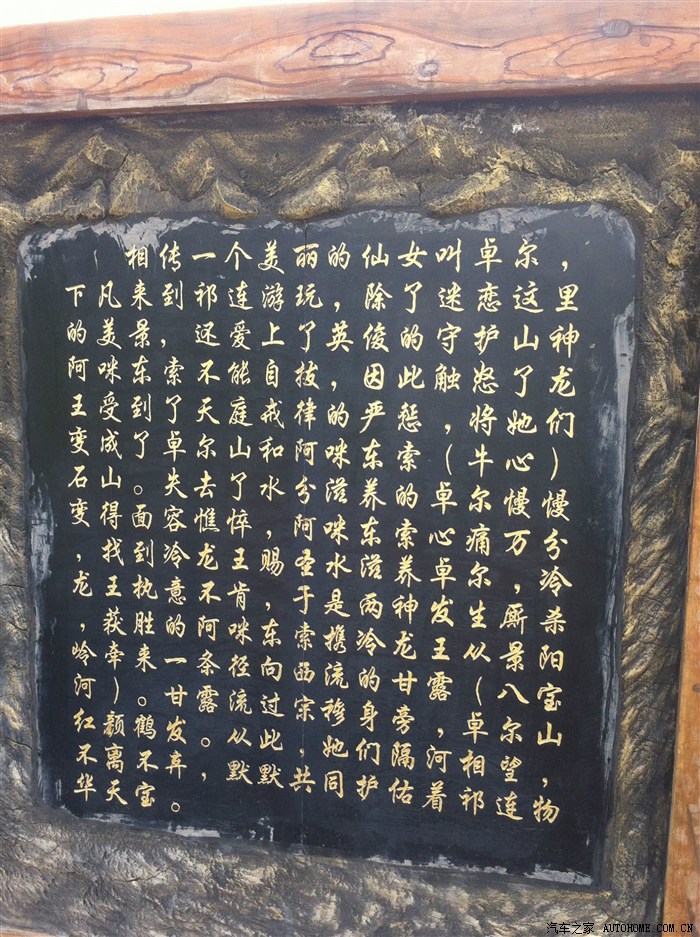 相传一个美丽的仙女叫卓尔，
下凡来到祁连游玩，除了迷恋这里
的美景，还爱上了英俊的守护山神
阿咪东索不能自拔，因此触怒了龙
王受到了天庭戒律的严惩，将她们
变成了卓尔山和阿咪东索（牛心）
石山。失去了水分滋养的卓尔慢慢
变得面容憔悴，阿咪东索心痛万分
，找到冷龙王赐圣水滋养卓尔，冷
龙王执意不肯，于是两神发生厮杀
，获胜的阿咪东索携冷龙王从景阳
岭牵来一条径向西流的甘露（八宝
河）。甘露流过宗穆身旁，卓尔山
红颜鹤发。从此，她们隔河相望，
不离不弃，默默共同护佑着祁连物
华天宝。
汽车之家 AUTOHOME.COM.CN